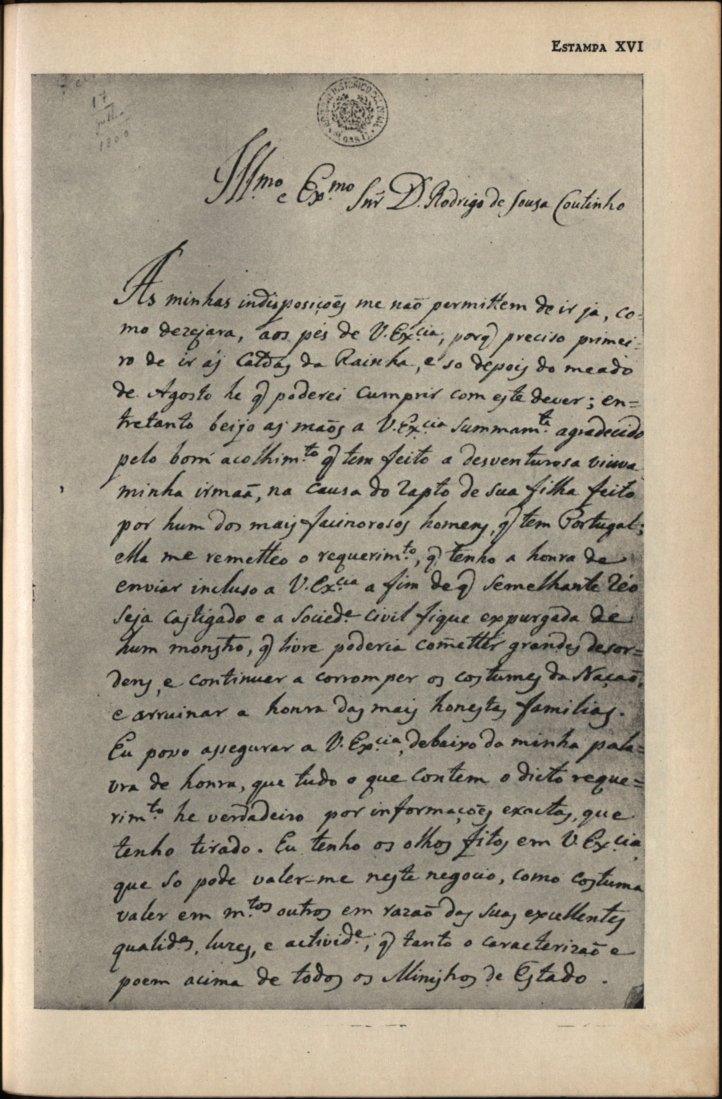 Estampa XVI
17
1800
Ill.mo e Ex.mo Snr D. Rodrigo de Sousa Coutinho
As minhas indisposições me não permittem de ir ja, co-
mo dezejara, aos pés de V.Ex.cia, porq̃ preciso primei-
ro de ir ás Caldas da Rainha, e so depois do meado
de Agosto he q̃ poderei cumprir com este dever; en=
tretanto beijo as mãos a V.Ex.cia summam.te agradecido
pelo bom acolhim.to q̃ tem feito a desventurosa viuva
minha irmaã, na causa do rapto de sua filha feito
por hum dos mais facinorosos homens, q̃ tem Portugal;
ella me remetteo o requerim.to, q̃ tenho a honra de
enviar incluso a V.Ex.cia a fim de q̃ semelhante reo
seja castigado e a socied.e civil fique expurgada de
hum monstro, q̃ livre poderia cometter grandes desor-
dens, e continuar a corromper os costumes da Nação,
e arruinar a honra das mais honestas familias.
Eu posso assegurar a V.Ex.cia, debaixo da minha pala=
vra de honra, que tudo o que contem o dicto reque=
rim.to he verdadeiro por informações exactas, que
tenho tirado. Eu tenho os olhos fitos em V.Ex.cia,
que so pode valer-me neste negocio, como costuma
valer em m.tos outros em razão das suas excellentes
qualid.es, luzes, e activid.e, q̃ tanto o caracterizão e
poem acima de todos os Ministros de Estado.